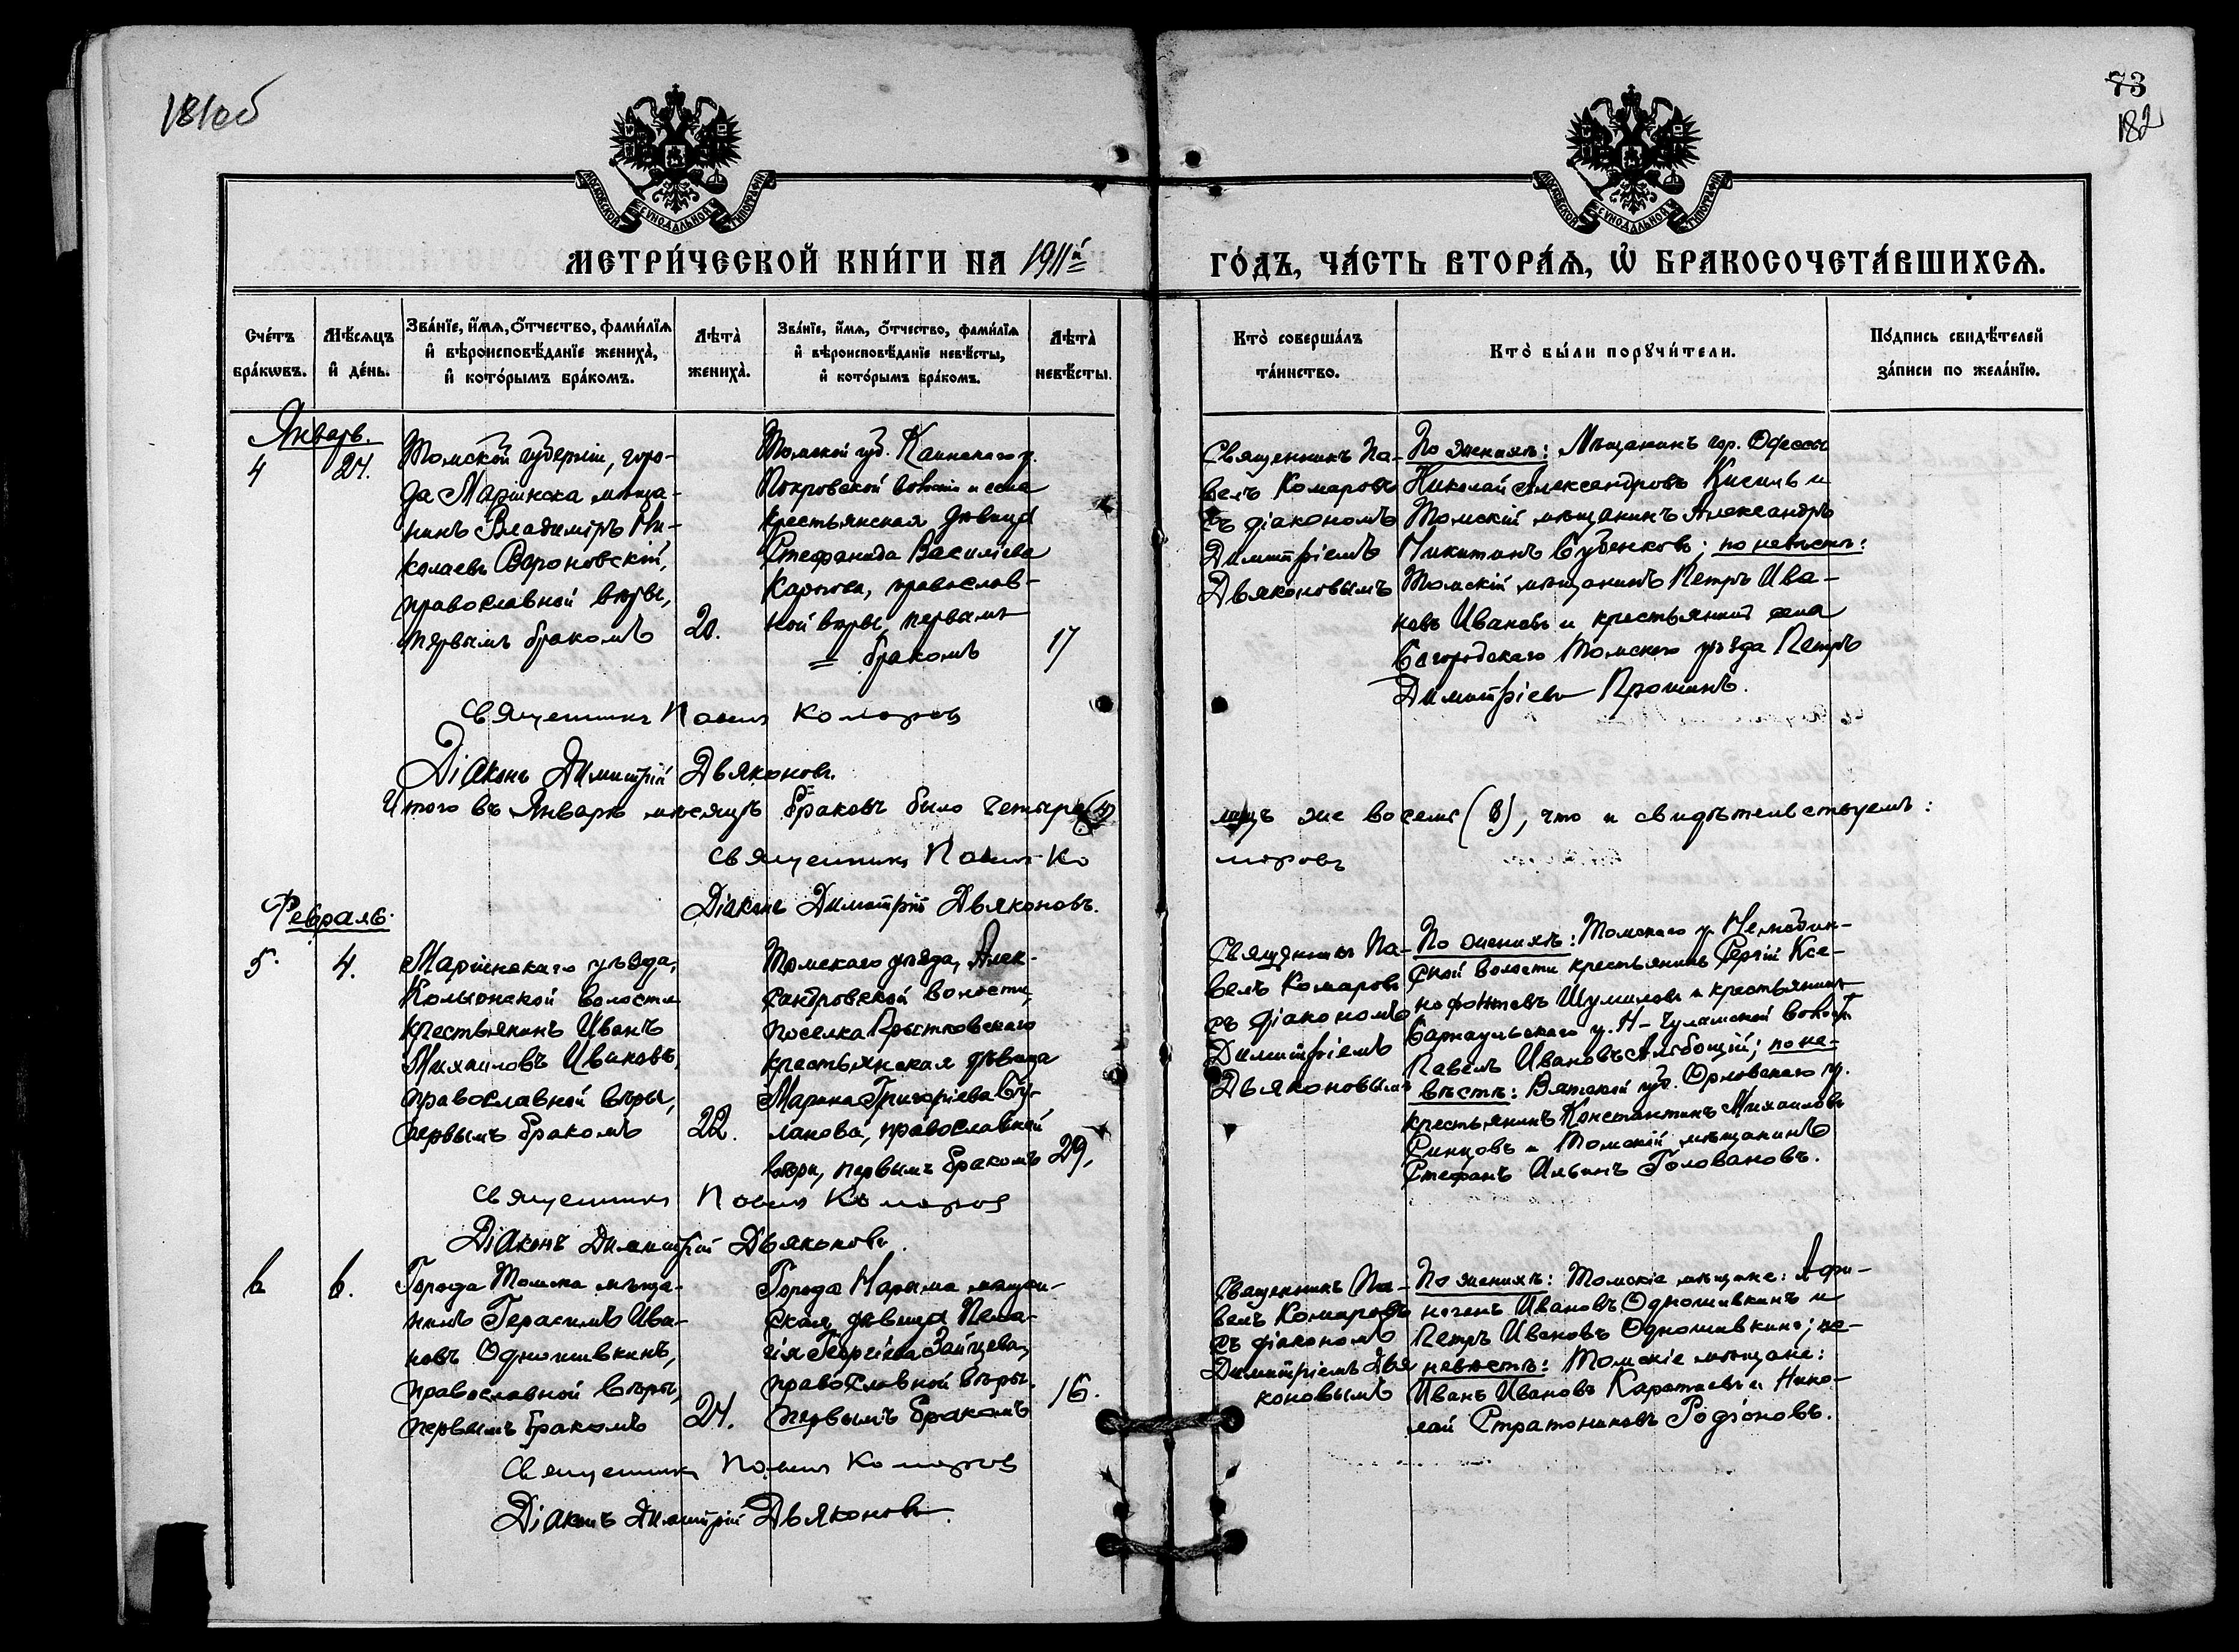 181об
73
182
МОСКОВСКОЙ СѴНОДАЛЬНОЙ ТИПОГРАФІИ
МОСКОВСКОЙ СѴНОДАЛЬНОЙ ТИПОГРАФІИ
МЕТРИ́ЧЕСКОЙ КНИ́ГИ НА 1911й
ГО́ДЪ, ЧА́СТЬ ВТОРА́Я, Ѡ҆ БРАКОСОЧЕТА́ВШИХСЯ.
Счетъ
бра́кѡвъ.
Мѣ́сяцъ
и҆ де́нь.
Зва́нїе, и҆́мя, ѻ҆́тчество, фами́лїя
и҆ вѣроисповѣ́данїе жениха̀,
и҆ кото́рымъ бра́комъ.
Лѣ́та̀
жениха̀.
Зва́нїе, и҆́мя, ѻ҆́тчество, фами́лїя
и҆ вѣроисповѣ́данїе невѣ́сты,
и҆ кото́рымъ бра́комъ.
Лѣ́та̀
невѣ́сты.
Кто̀ соверша́лъ
та́инство.
Кто̀ бы́ли порꙋчи́тели.
По́дпись свидѣ́телей
за́писи по жела́нїю.
Январь.
4
24.
Томской губерніи, горо-
да Маріинска мѣща-
нинъ Владиміръ Ни-
колаевъ Вороновскій,
православной вѣры,
первымъ бракомъ
20.
Томской губ. Каинскаго у.
Покровской волости и села
крестьянская дѣвица
Стефанида Василіева
Карпова, православ-
ной вѣры, первымъ
= бракомъ
17
Священникъ Па-
велъ Комаровъ
съ діакономъ
Димитріемъ
Дьяконовымъ
По женихѣ: Мѣщанинъ гор. Одессы
Николай Александровъ Кисиль и
Томскій мѣщанинъ Александръ
Никитинъ Бубенковъ; по невѣстѣ:
Томскій мѣщанинъ Петръ Ива-
новъ Ивановъ и крестьянинъ села
Богородскаго Томскаго уѣзда Петръ
Димитріевъ Прошинъ.
Священникъ Павелъ Комаровъ
Діаконъ Димитрій Дьяконовъ.
Итого въ Январѣ мѣсяцѣ браковъ было четыре (4)
лицъ же восемь (8), что и свидѣтельствуемъ:
Священникъ Павелъ Ко
маровъ
Діаконъ Димитрій Дьяконовъ.
Февраль.
5.
4.
Маріинскаго уѣзда,
Колыонской волости
крестьянинъ Иванъ
Михаиловъ Ивановъ,
православной вѣры,
первымъ бракомъ
22.
Томскаго уѣзда, Алек-
сандровской волости,
поселка
крестьянская дѣвица
Марина Григоріева Бу-
лакова, православной
вѣры, первымъ бракомъ
29,
Священникъ Па-
велъ Комаровъ
съ діакономъ
Димитріемъ
Дьяконовымъ
По женихѣ: Томскаго у. Нелюбин-
ской волости крестьянинъ Сергій Ксе-
нофонтовъ Шумиловъ и крестьянинъ
Барнаульскаго у. Н-Чулымской волости
Павелъ Ивановъ; по не-
вѣстѣ: Вятской губ. Орловскаго у.
крестьянинъ Константинъ Михаиловъ
Синцовъ и Томскій мѣщанинъ
Стефанъ Ильинъ Головановъ.
Священникъ Павелъ Комаровъ
Діаконъ Димитрій Дьяконовъ.
6
6.
Города Томска мѣща-
нинъ Герасимъ Ива-
новъ Одношивкинъ,
православной вѣры,
первымъ бракомъ
24.
Города Нарыма мѣщан-
ская дѣвица Пела-
гія Георгіева Зайцева,
православной вѣры,
первымъ бракомъ
16.
Священникъ Па-
велъ Комаровъ
съ діакономъ
Димитріемъ Дья
коновымъ
По женихѣ: Томскіе мѣщане: Афи-
ногенъ Ивановъ Одношивкинъ и
Петръ Ивановъ Одношивкинъ; по
невѣстѣ: Томскіе мѣщане:
Иванъ Ивановъ Каратаевъ и Нико-
лай Стратониковъ Родіоновъ.
Священникъ Павелъ Комаровъ
Діаконъ Димитрій Дьяконовъ.